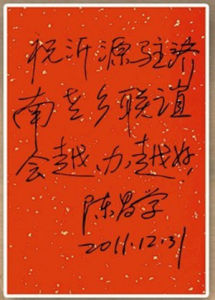 祝沂源驻济
南老乡联谊
会越办越好
陈昌学
2011.12.31